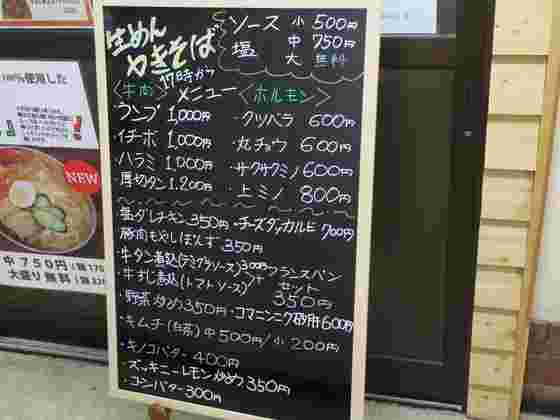 生めん
やきそば
ソース 小 500円
塩 中 750円
大 無料
17時から
メニュー
〈牛肉〉
〈ホルモン〉
ランプ 1,000円
イチボ 1,000円
ハラミ 1,000円
厚切タン 1,200円
・クツベラ 600円
・丸チョウ 600円
・サクサクミノ 600円
・上ミノ 800円
・塩ダレチキン 350円
・チーズダッカルビ 700円
・豚肉もやしぽんず 350円
・牛タン煮込(デミグラソース) 300円
・牛すじ煮込(トマトソース)
+フランスパン
セット
350円
・野菜炒め 350円
・コマニンニク砂肝 600円
・キムチ(白菜) 中 500円/小 200円
・キノコバター 400円
・ズッキーニレモン炒め 350円
・コンバター 300円
100%使用した
NEW
中 750円
大盛り無料